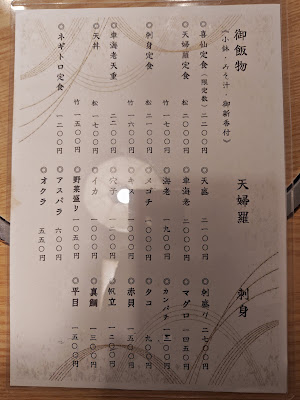 御飯物
(小鉢・みそ汁・御新香付)
◎喜仙定食(限定数) 二二〇〇円
◎天婦羅定食 松 二〇〇〇円
竹 一五〇〇円
◎刺身定食 松 二一〇〇円
竹 一六〇〇円
◎車海老天重
◎天丼 松 一七〇〇円
竹 一五〇〇円
◎ネギトロ定食 一二〇〇円
天婦羅
天盛 二一〇〇円
車海老 二〇〇〇円
海老 一九〇〇円
メゴチ
キス
穴子
イカ
野菜盛り 一〇五〇円
アスパラ 六〇〇円
オクラ 五五〇円
刺身
刺盛り 二七〇〇円
マグロ 一四五〇円
カンパチ 一三〇〇円
タコ 九〇〇円
赤貝 一五〇〇円
帆立 一二〇〇円
真鯛 一三〇〇円
平目 一五〇〇円